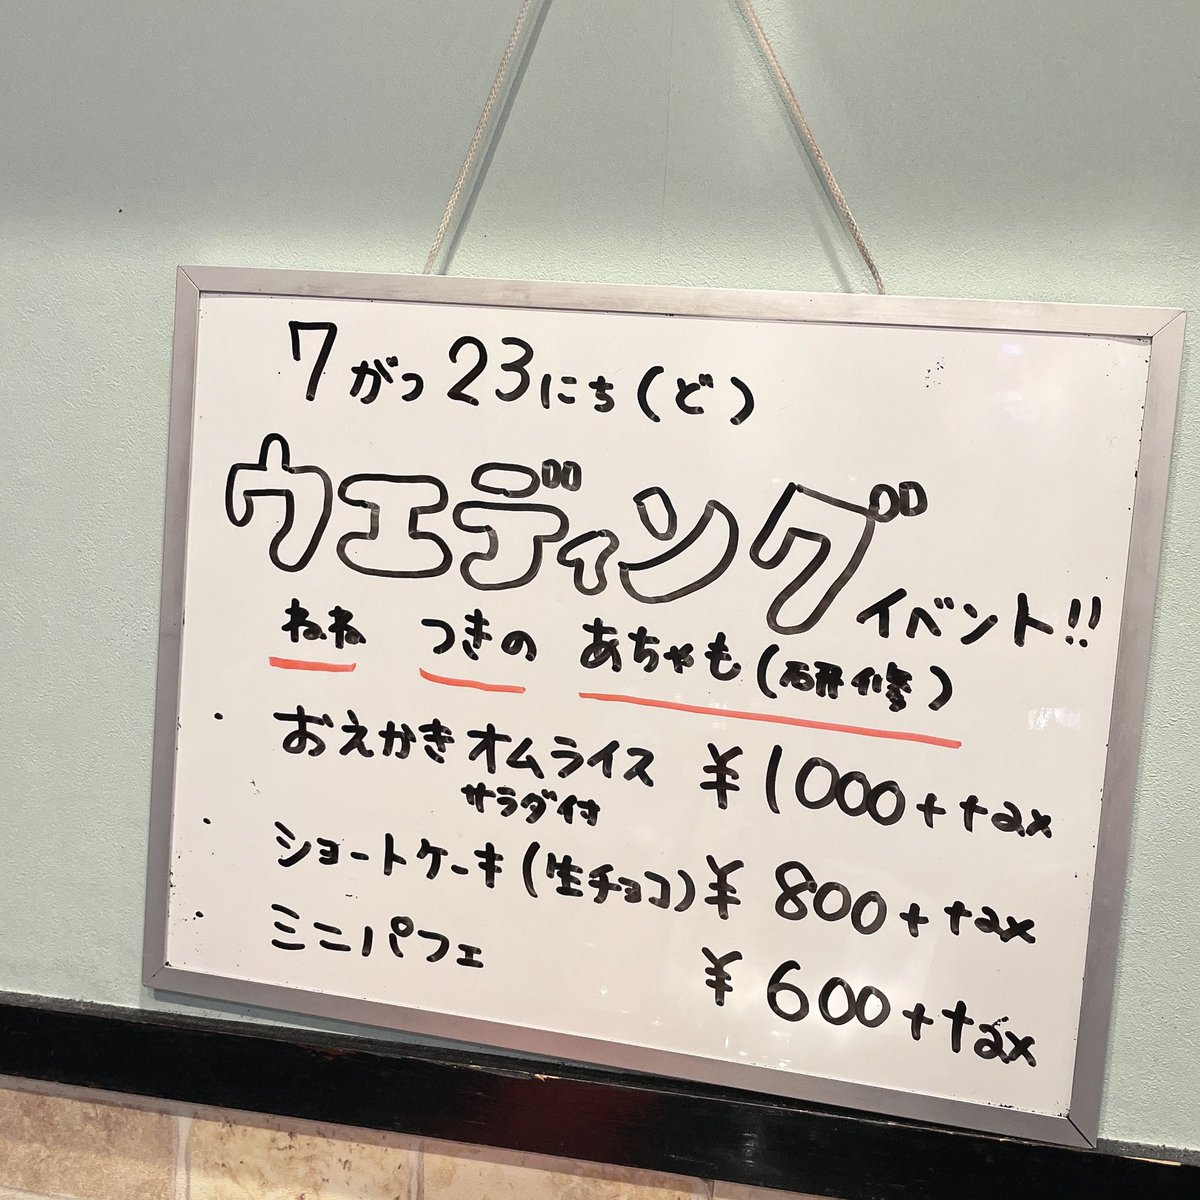 7がつ23にち(ど)
ウエディングイベント!!
ねね つきの あちゃも(研修)
・おえかきオムライス ¥1000+tax
サラダ付
・ショートケーキ(生チョコ)¥800+tax
・ミニパフェ ¥600+tax